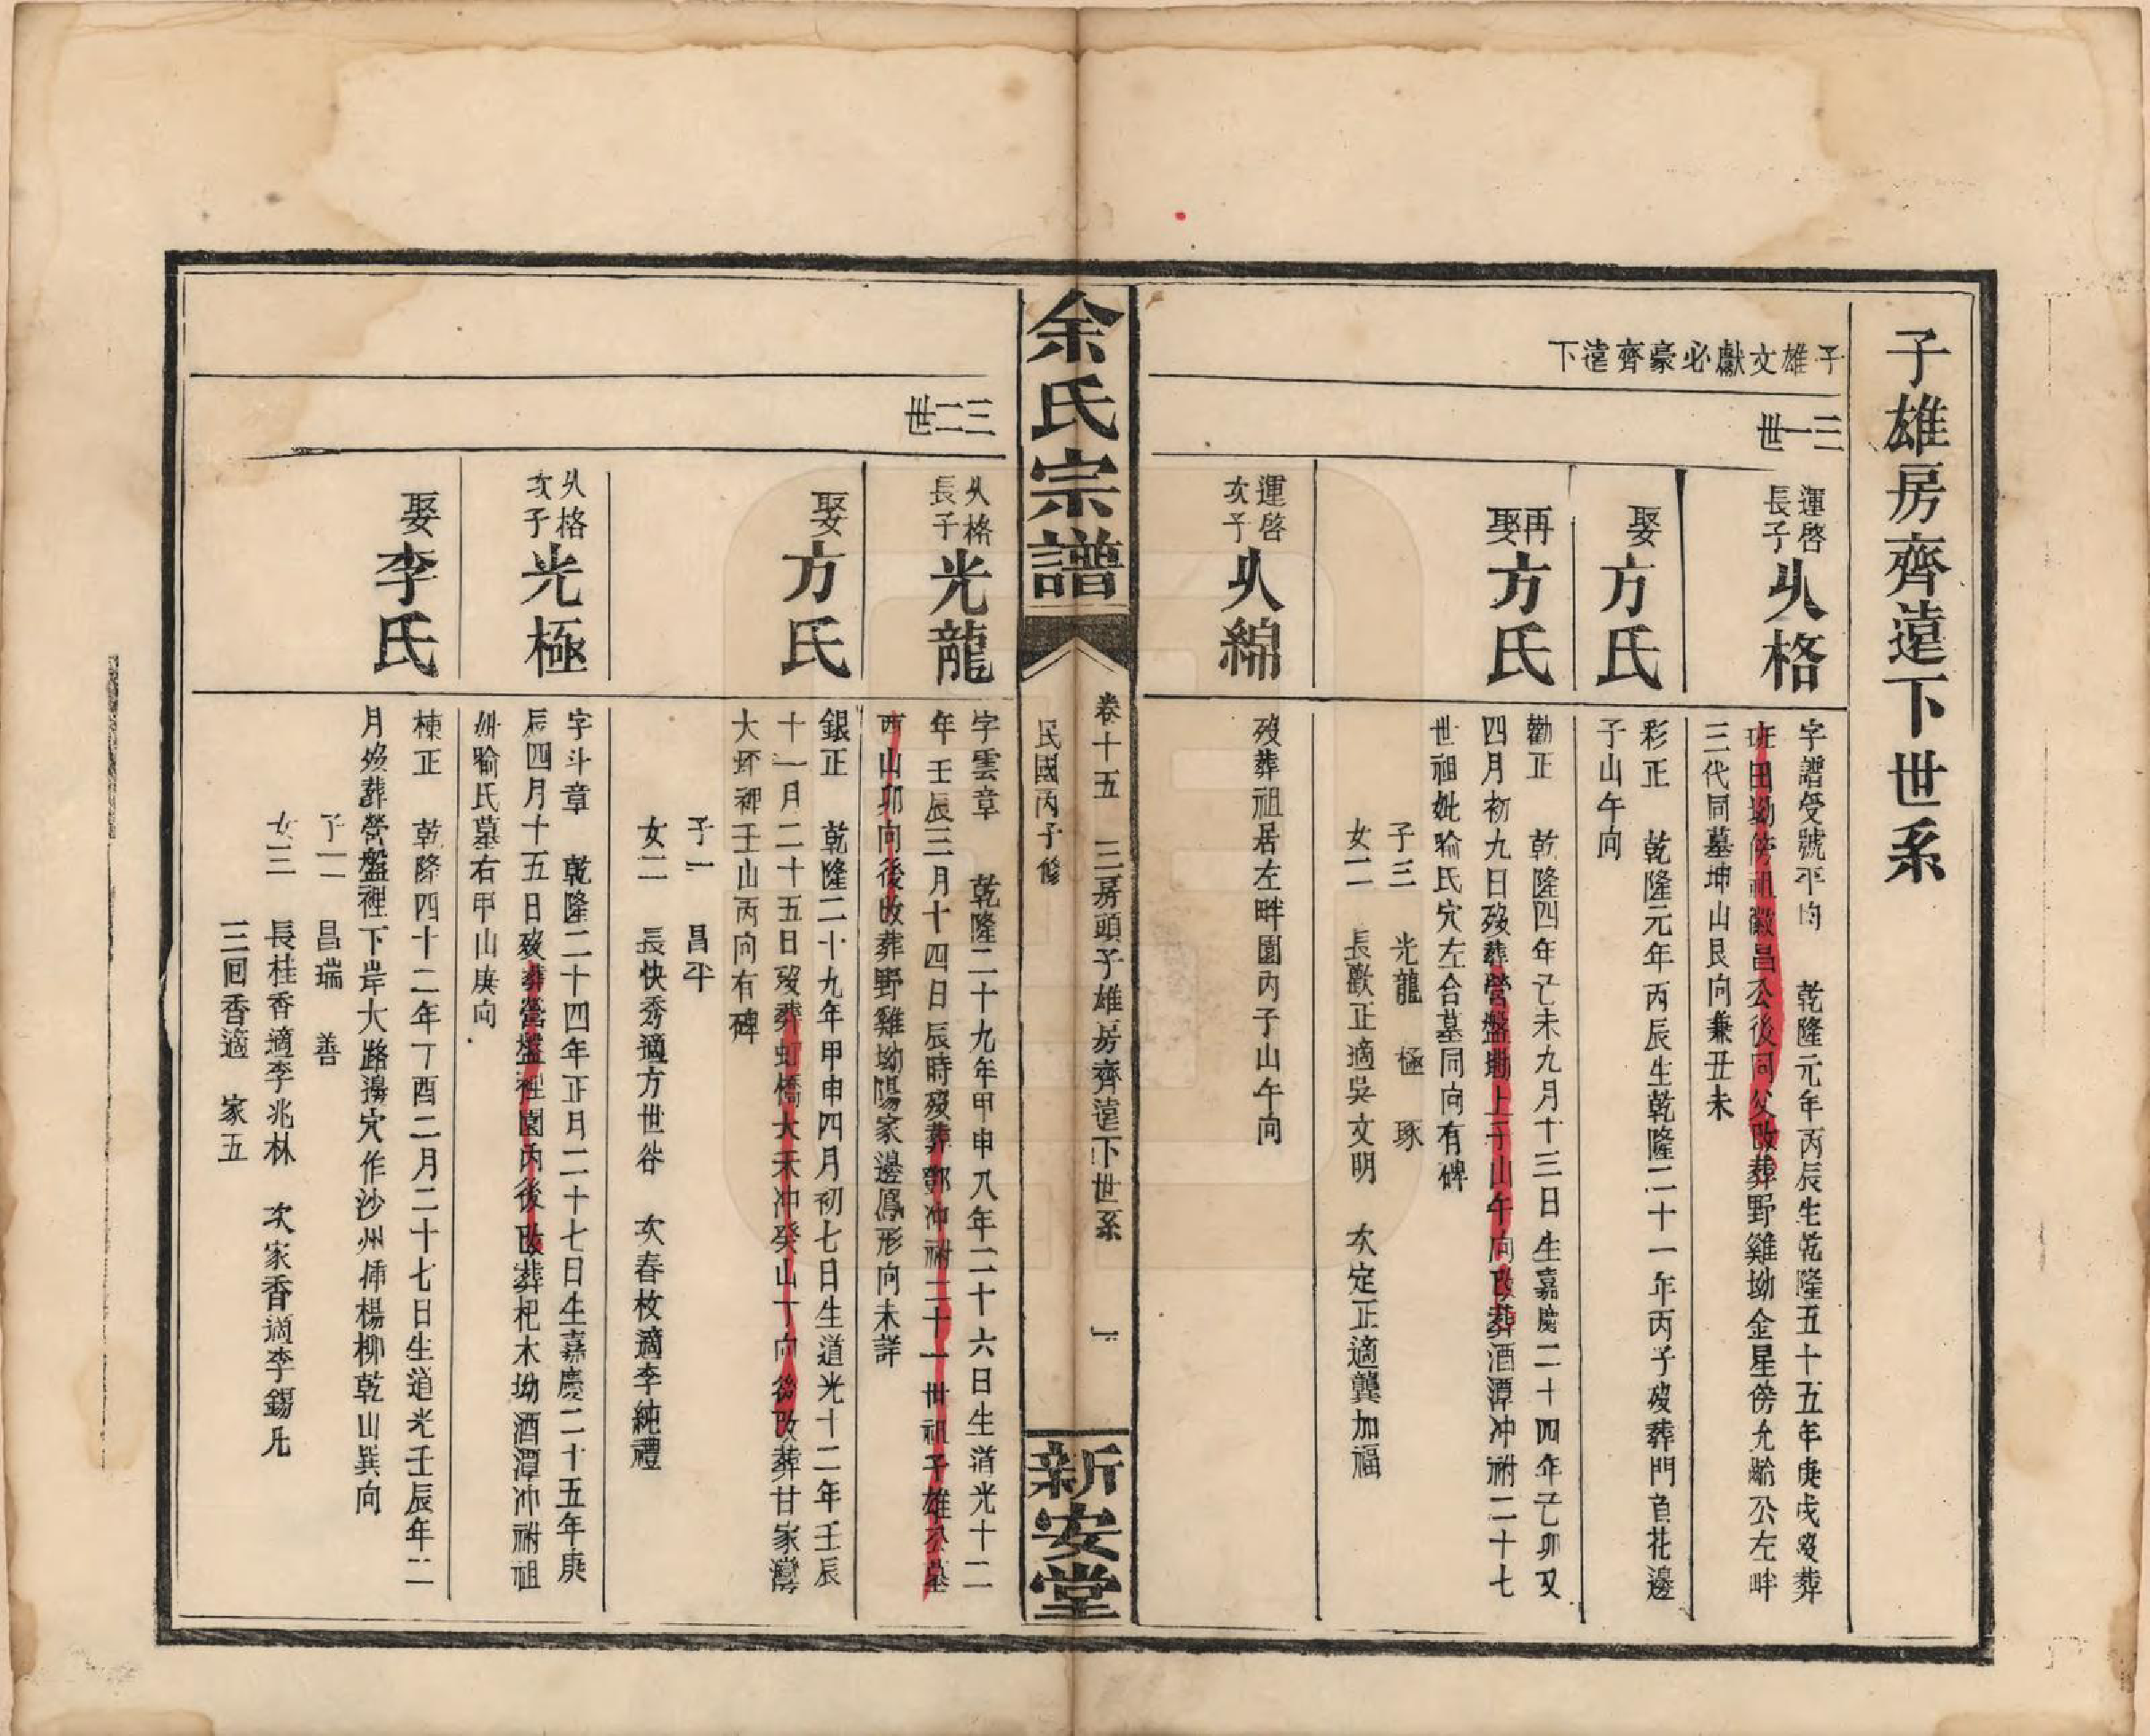 子雄房齊遠下世系
子雄文獻必豪齊遠下
三一世
運啓長子 㸦格
字譜受號平均 乾隆元年丙辰生乾隆五十五年庚戌歿葬
班田坳傍祖徽昌公後同父改葬野雞坳金星傍允瑜公左畔
三代同墓坤山艮向兼丑未
娶方氏
彩正 乾隆元年丙辰生乾隆二十一年丙子歿葬門首花邊
子山午向
再娶方氏
勸正 乾隆四年己未九月十三日生嘉慶二十四年己卯又
四月初九日歿葬營盤墈上子山午向改葬酒潭冲祔二十七
世祖妣喻氏穴左合墓同向有碑
子三 光龍 極 琢
女二 長歡正適吳文明 次定正適龔加福
運啓次子 㸦綿
歿葬祖居左畔園內子山午向
余氏宗譜
卷十五 三房頭子雄房齊遠下世系 一
民國丙子修
新安堂
三二世
㸦格長子 光龍
字雲章 乾隆二十九年甲申八年二十六日生道光十二
年壬辰三月十四日辰時歿葬鄧冲祔二十一世祖子雄公墓
酉山卯向後改葬野雞坳陽家邊鳳形向未詳
娶方氏
銀正 乾隆二十九年甲申四月初七日生道光十二年壬辰
十一月二十五日歿葬虹橋大禾冲癸山丁向後改葬甘家灣
大坏裡壬山丙向有碑
子一 昌平
女二 長快秀適方世谷 次春枚適李純禮
㸦格次子 光極
字斗章 乾隆二十四年正月二十七日生嘉慶二十五年庚
辰四月十五日歿葬營盤裡園內後改葬杞木坳酒潭冲祔祖
妣喻氏墓右甲山庚向
娶李氏
棟正 乾隆四十二年丁酉二月二十七日生道光壬辰年二
月歿葬營盤裡下岸大路塝穴作沙州揷楊柳乾山巽向
子二 昌瑞 善
女三 長桂香適李兆林 次家香適李錫凡
三回香適 家五